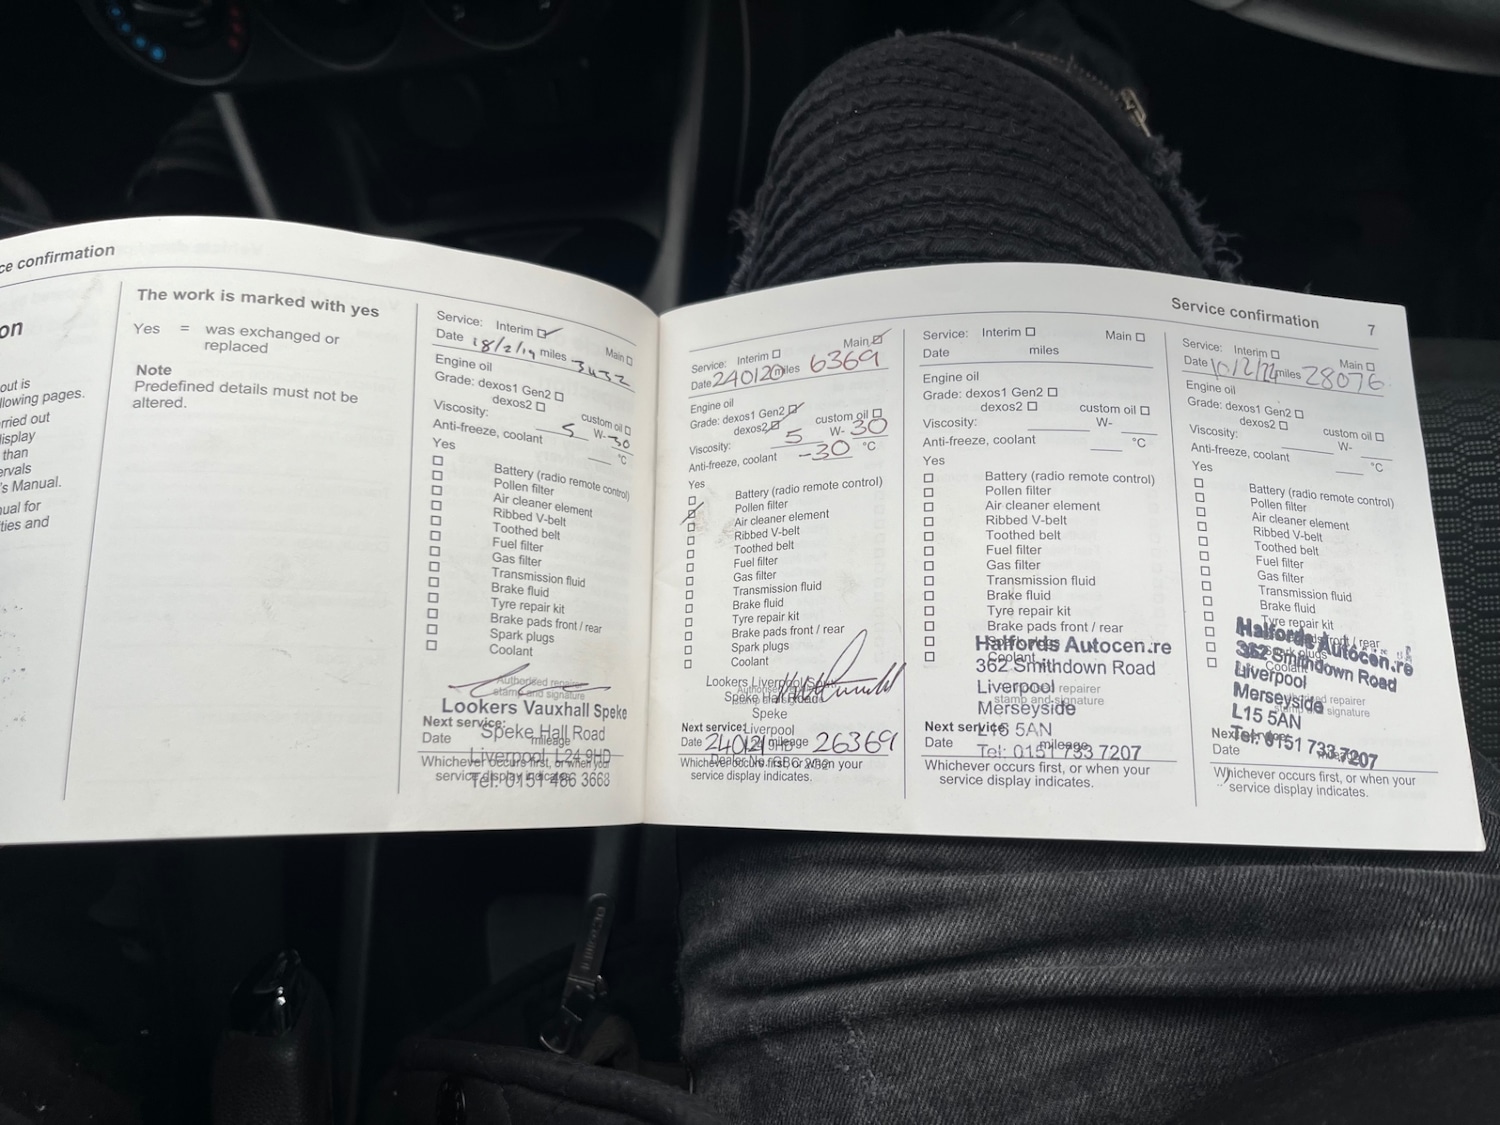 ce confirmation
on
out is
llowing pages.
rried out
isplay
than
ervals
's Manual.
ual for
ties and
The work is marked with yes
Yes = was exchanged or
replaced
Note
Predefined details must not be
altered.
Service: Interim ☑ Main ☐
Date 18/2/19 miles 3432
Engine oil
Grade: dexos1 Gen2 ☐
dexos2 ☐ custom oil ☐
Viscosity: 5 W-30
Anti-freeze, coolant °C
Yes
☐ Battery (radio remote control)
☐ Pollen filter
☐ Air cleaner element
☐ Ribbed V-belt
☐ Toothed belt
☐ Fuel filter
☐ Gas filter
☐ Transmission fluid
☐ Brake fluid
☐ Tyre repair kit
☐ Brake pads front / rear
☐ Spark plugs
☐ Coolant
Authorised repairer
stamp and signature
Lookers Vauxhall Speke
Next service:
Speke Hall Road
Date mileage
Liverpool L24 9HD
Whichever occurs first, or when your
service display indicates.
Tel: 0151 486 3668
Service confirmation 7
Service: Interim ☐ Main ☑
Date 240120 miles 6369
Engine oil
Grade: dexos1 Gen2 ☑
dexos2 ☑ custom oil ☐
Viscosity: 5 W-30
Anti-freeze, coolant -30 °C
Yes
☐ Battery (radio remote control)
☑ Pollen filter
☐ Air cleaner element
☐ Ribbed V-belt
☐ Toothed belt
☐ Fuel filter
☐ Gas filter
☐ Transmission fluid
☐ Brake fluid
☐ Tyre repair kit
☐ Brake pads front / rear
☐ Spark plugs
☐ Coolant
Lookers Liverpool
Speke Hall Road
Speke
Next service: Liverpool
Date 240121 mileage 26369
Whichever occurs first, or when your
service display indicates.
Service: Interim ☐ Main ☐
Date miles
Engine oil
Grade: dexos1 Gen2 ☐
dexos2 ☐ custom oil ☐
Viscosity: W-
Anti-freeze, coolant °C
Yes
☐ Battery (radio remote control)
☐ Pollen filter
☐ Air cleaner element
☐ Ribbed V-belt
☐ Toothed belt
☐ Fuel filter
☐ Gas filter
☐ Transmission fluid
☐ Brake fluid
☐ Tyre repair kit
☐ Brake pads front / rear
☐ Spark plugs
☐ Coolant
Halfords Autocen.re
362 Smithdown Road
Liverpool
Authorised repairer
stamp and signature
Merseyside
Next service:
L15 5AN
Date mileage
Tel: 0151 733 7207
Whichever occurs first, or when your
service display indicates.
Service: Interim ☐ Main ☐
Date miles 28076
Engine oil
Grade: dexos1 Gen2 ☐
dexos2 ☐ custom oil ☐
Viscosity: W-
Anti-freeze, coolant °C
Yes
☐ Battery (radio remote control)
☐ Pollen filter
☐ Air cleaner element
☐ Ribbed V-belt
☐ Toothed belt
☐ Fuel filter
☐ Gas filter
☐ Transmission fluid
☐ Brake fluid
☐ Tyre repair kit
☐ Brake pads front / rear
☐ Spark plugs
☐ Coolant
Halfords Autocen.re
362 Smithdown Road
Liverpool
Merseyside
Authorised repairer
stamp and signature
L15 5AN
Next service:
Tel: 0151 733 7207
Date mileage
Whichever occurs first, or when your
service display indicates.